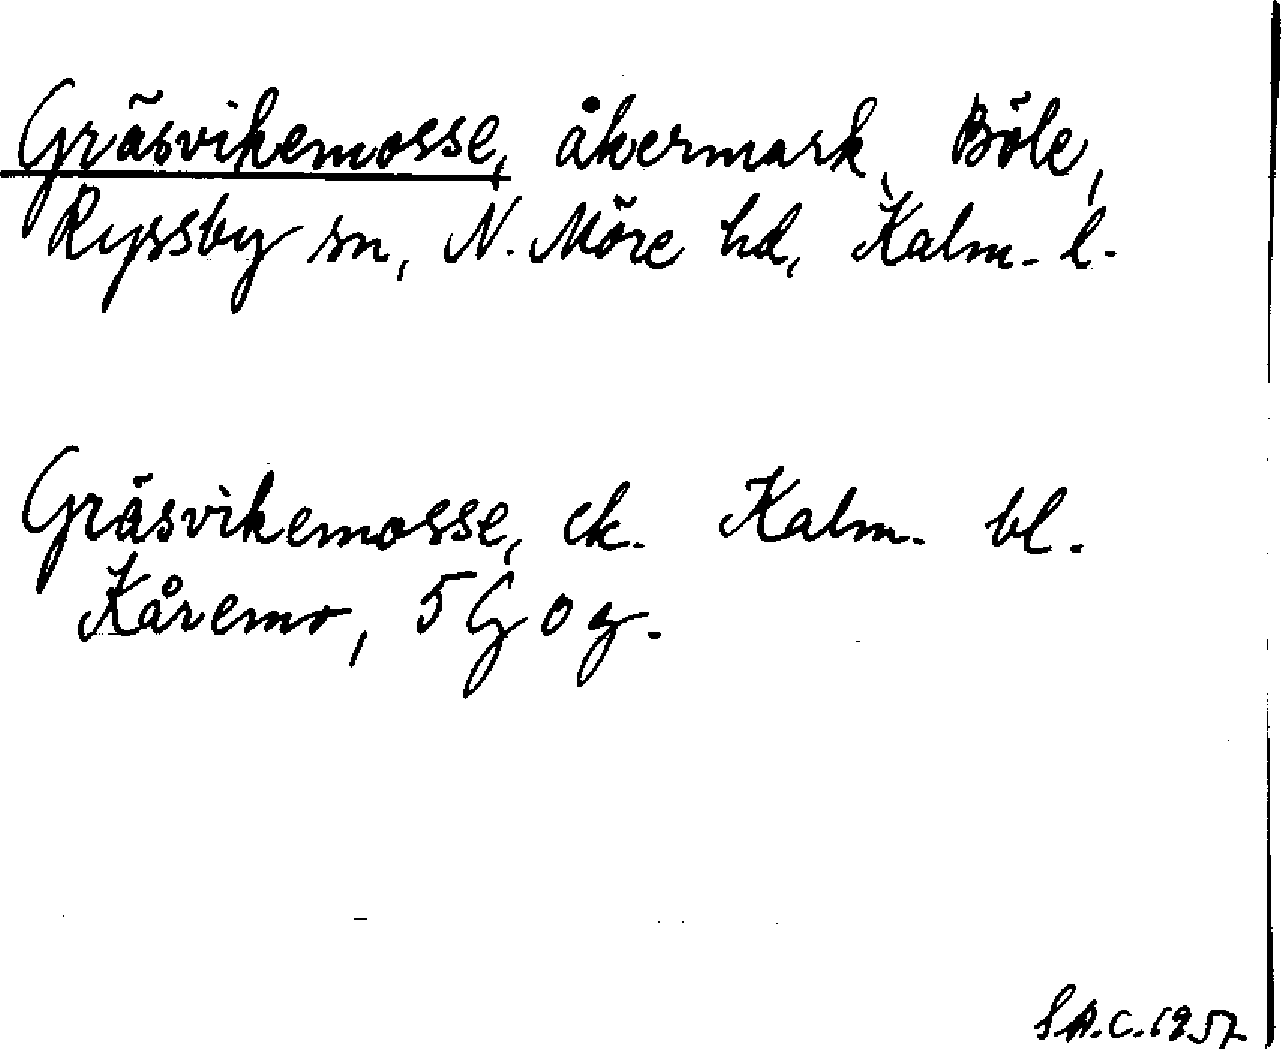 Gräsvikemosse, åkermark, Böle,
Ryssby sn, N. Möre hd, Kalm. l.
Gräsvikemosse, ek. Kalm. bl.
Kåremo, 5 G o g.
S.A.C. 1957